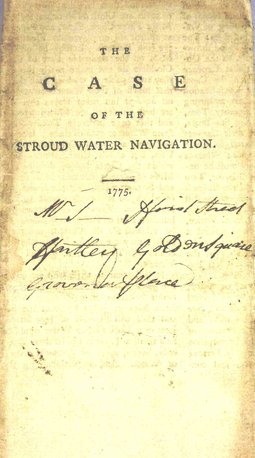 THE
CASE
OF THE
STROUD WATER NAVIGATION.
1775.
Street
Hartley Goldensquare
Grovenor place